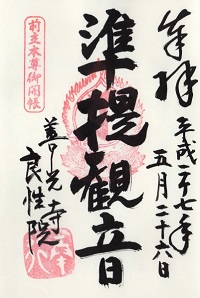 奉拝
平成二十七年
五月二十六日
準提観音
善光寺
良性院
前立本尊御開帳